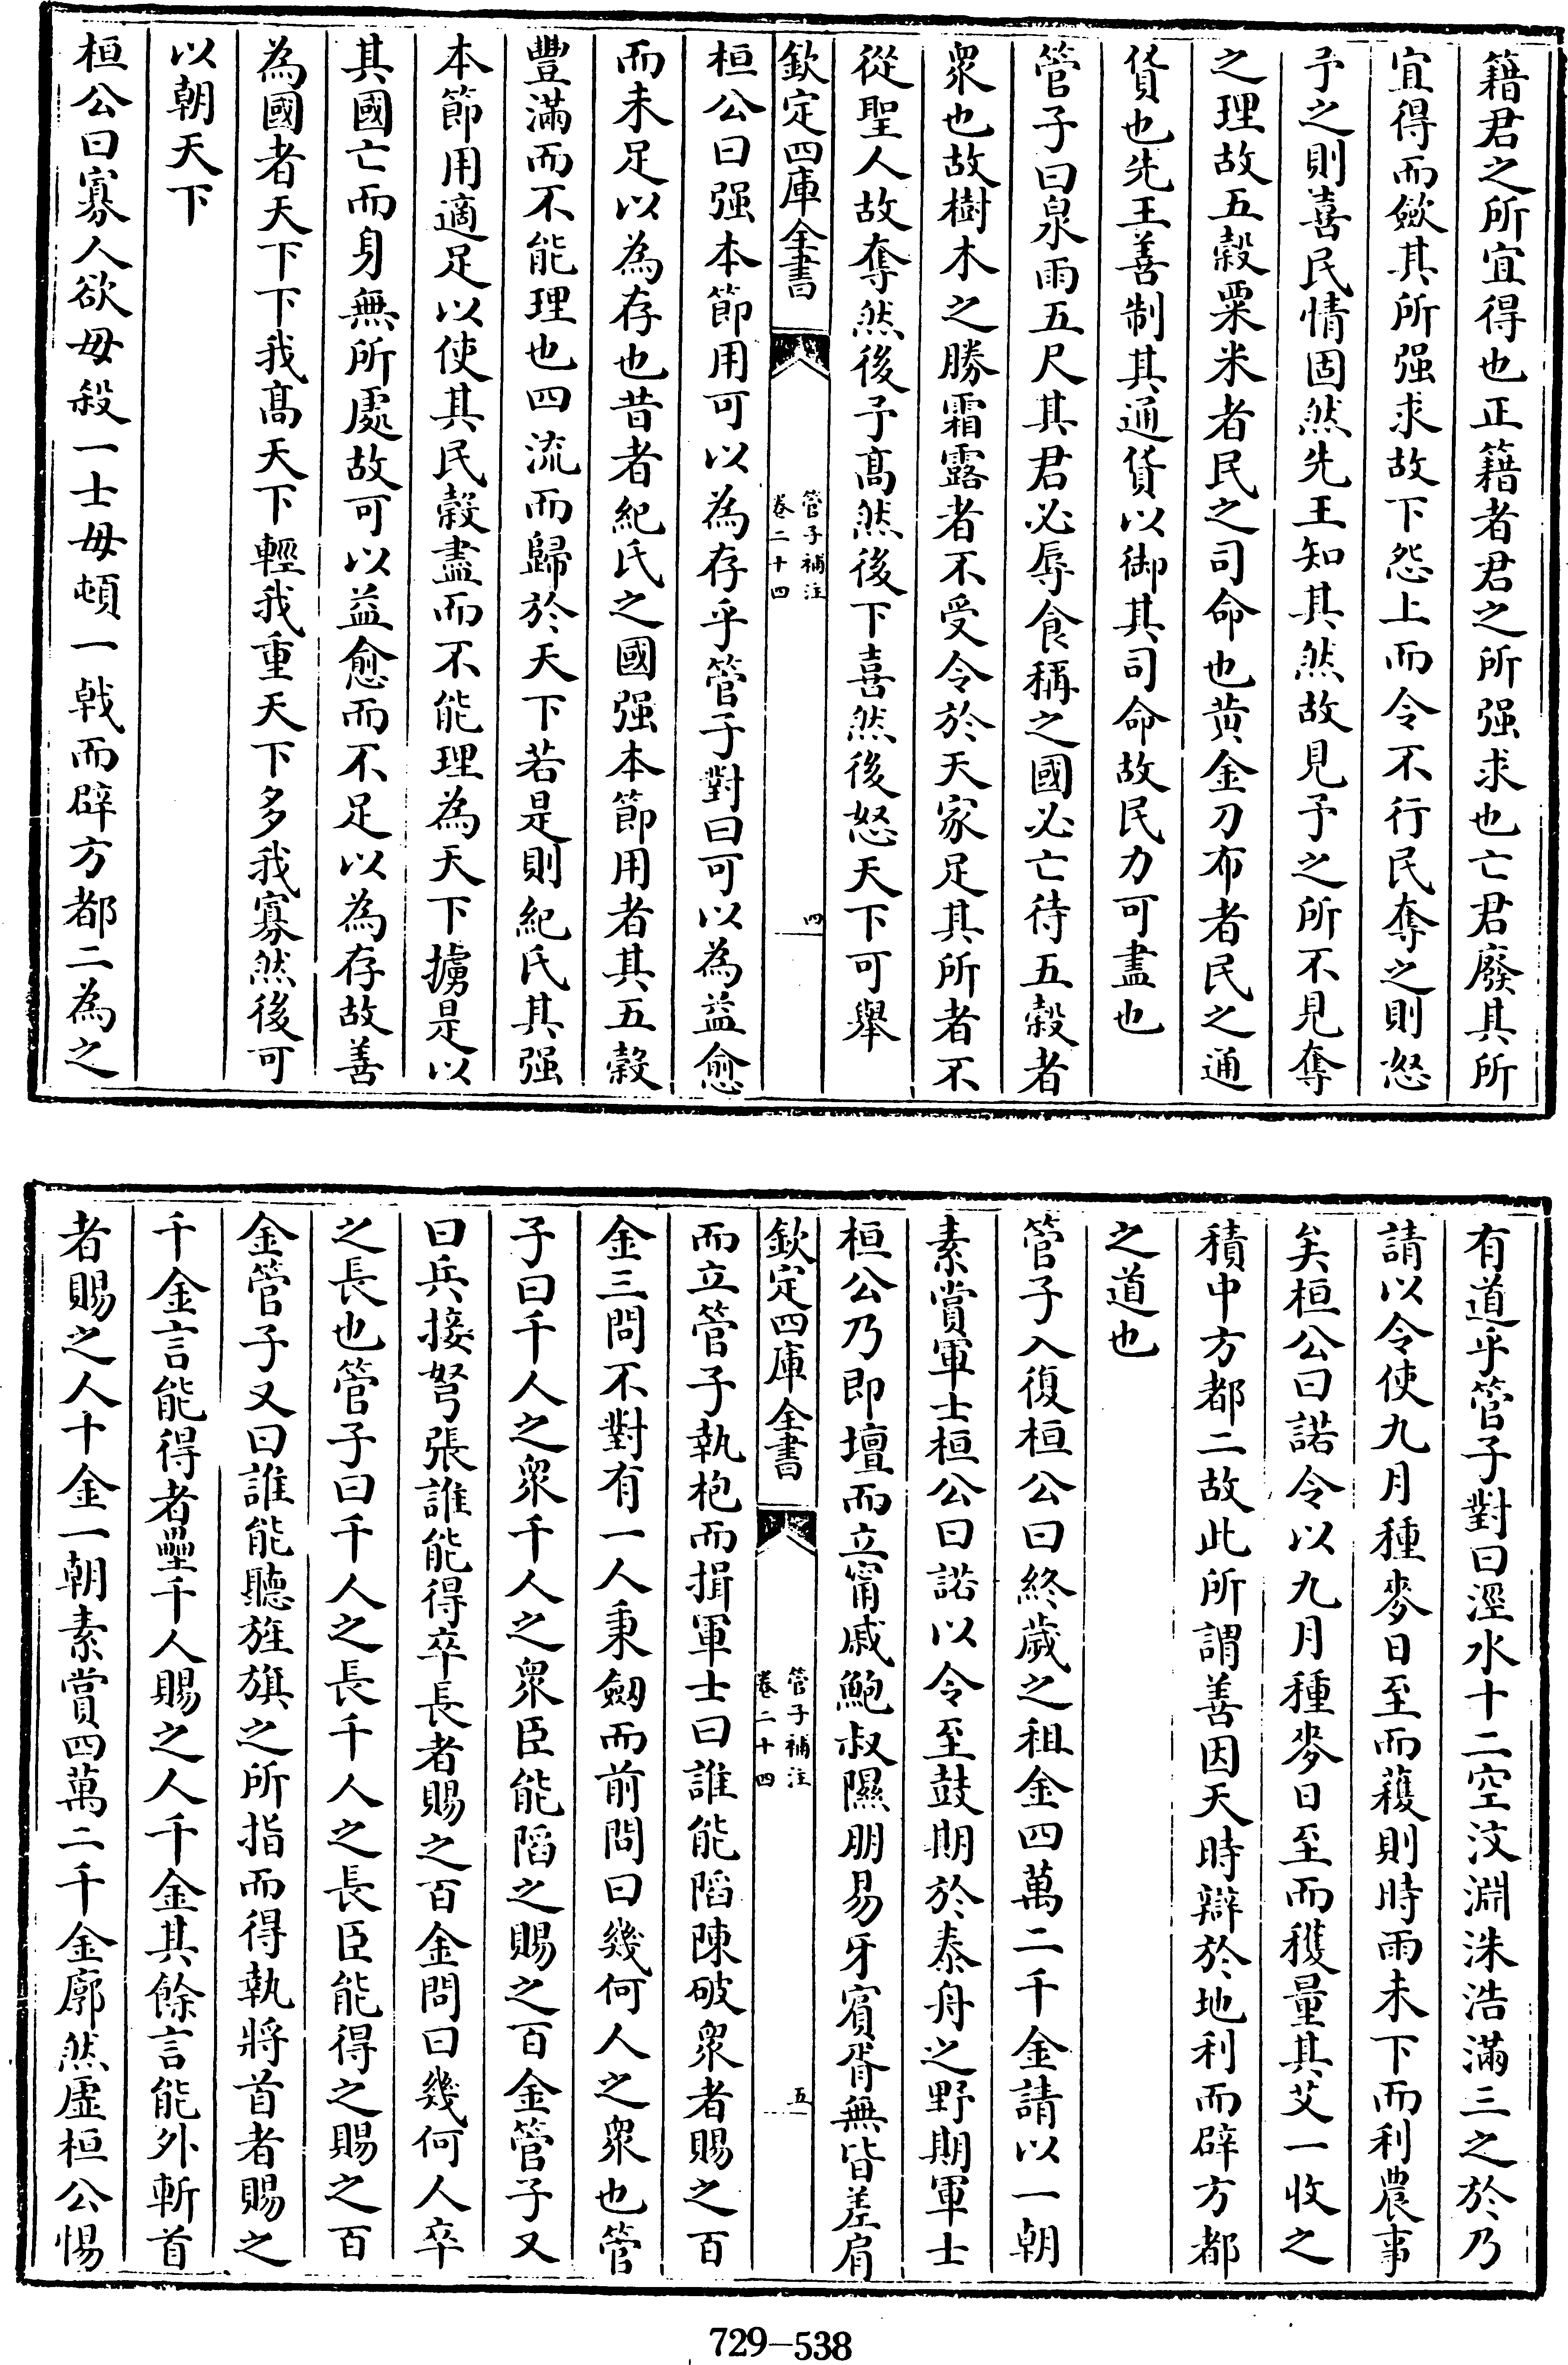 籍君之所宜得也正籍者君之所强求也亡君廢其所
宜得而斂其所强求故下怨上而令不行民奪之則怒
予之則喜民情固然先王知其然故見予之所不見奪
之理故五穀粟米者民之司命也黄金刀布者民之通
貨也先王善制其通貨以御其司命故民力可盡也
管子曰泉雨五尺其君必辱食稱之國必亡待五穀者
衆也故樹木之勝霜露者不受令於天家足其所者不
從聖人故奪然後予髙然後下喜然後怒天下可舉
欽定四庫全書
管子補注
卷二十四
四
桓公曰强本節用可以為存乎管子對曰可以為益愈
而未足以為存也昔者紀氏之國强本節用者其五穀
豐滿而不能理也四流而歸於天下若是則紀氏其强
本節用適足以使其民穀盡而不能理為天下擄是以
其國亡而身無所處故可以益愈而不足以為存故善
為國者天下下我髙天下輕我重天下多我寡然後可
以朝天下
桓公曰寡人欲毋殺一士毋頓一㦸而辟方都二為之
有道乎管子對曰涇水十二空汶淵洙浩滿三之於乃
請以令使九月種麥日至而穫則時雨未下而利農事
矣桓公曰諾令以九月種麥日至而穫量其艾一收之
積中方都二故此所謂善因天時辯於地利而辟方都
之道也
管子入復桓公曰終歲之租金四萬二千金請以一朝
素賞軍士桓公曰諾以令至鼓期於泰舟之野期軍士
桓公乃即壇而立甯戚鮑叔隰朋易牙賔胥無皆差肩
欽定四庫全書
管子補注
卷二十四
五
而立管子執枹而揖軍士曰誰能䧟陳破衆者賜之百
金三問不對有一人秉劒而前問曰幾何人之衆也管
子曰千人之衆千人之衆臣能䧟之賜之百金管子又
曰兵接弩張誰能得卒長者賜之百金問曰幾何人卒
之長也管子曰千人之長千人之長臣能得之賜之百
金管子又曰誰能聽旌旗之所指而得執將首者賜之
千金言能得者壘千人賜之人千金其餘言能外斬首
者賜之人十金一朝素賞四萬二千金廓然虚桓公惕
729—538